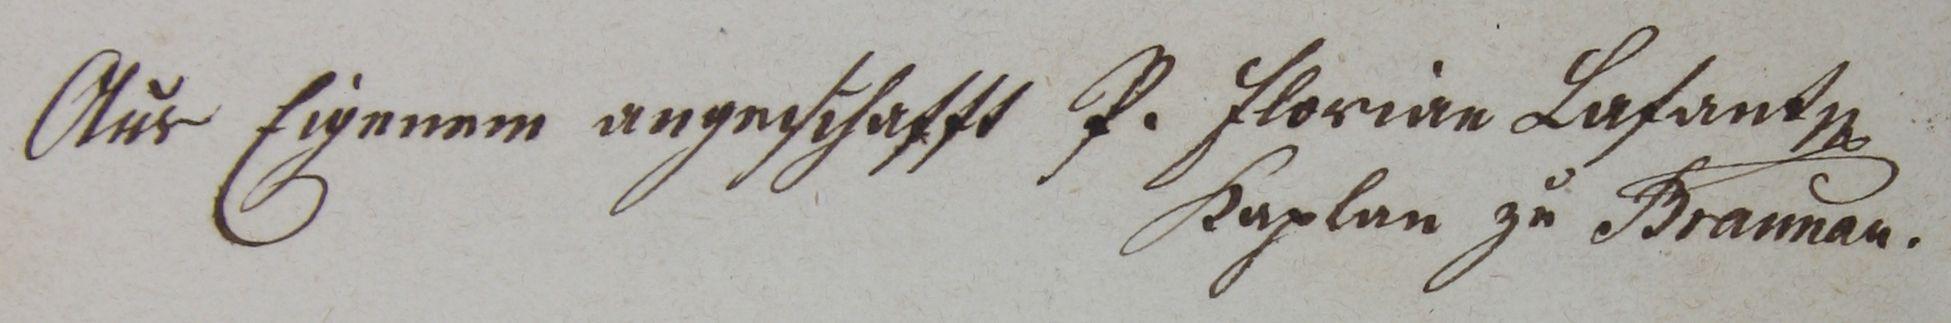 Aus Eigenem angeschafft P. Florian Lafantz
Kaplan zu Braunau.